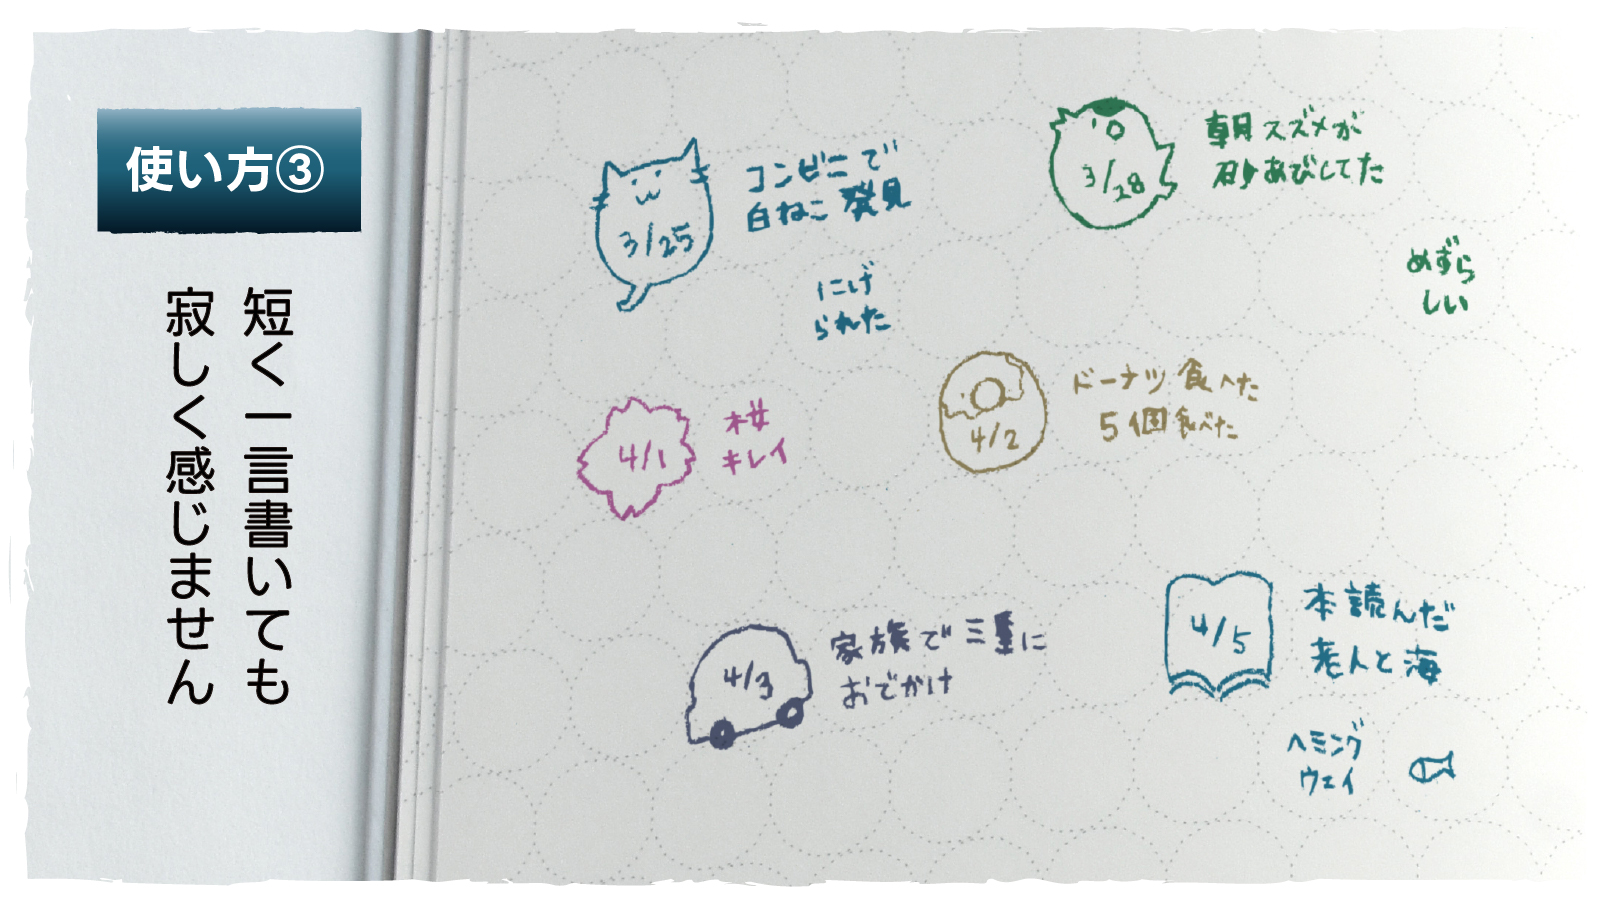 使い方③
短く一言書いても
寂しく感じません
3/25
コンビニで
白ねこ発見
にげ
られた
3/28
朝スズメが
砂あびしてた
めずら
しい
4/1
桜
キレイ
4/2
ドーナツ食べた
5個食べた
4/3
家族で三重に
おでかけ
4/5
本読んだ
老人と海
ヘミング
ウェイ